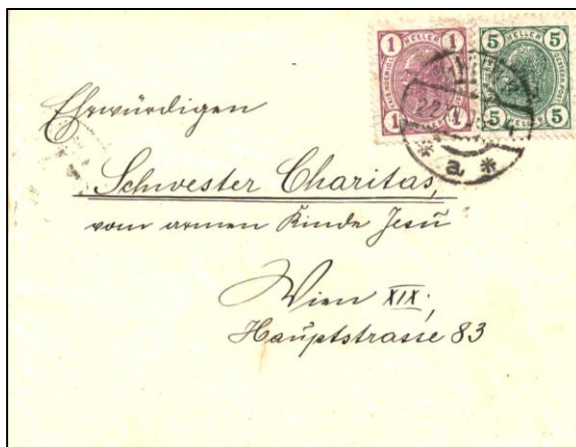 1 HELLER 1
5 HELLER 5
1 HELLER 1
5 HELLER 5
22
* a *
Ehrwürdigen
Schwester Charitas,
vom armen Kinde Jesū
Wien XIX,
Haūptstrasse 83